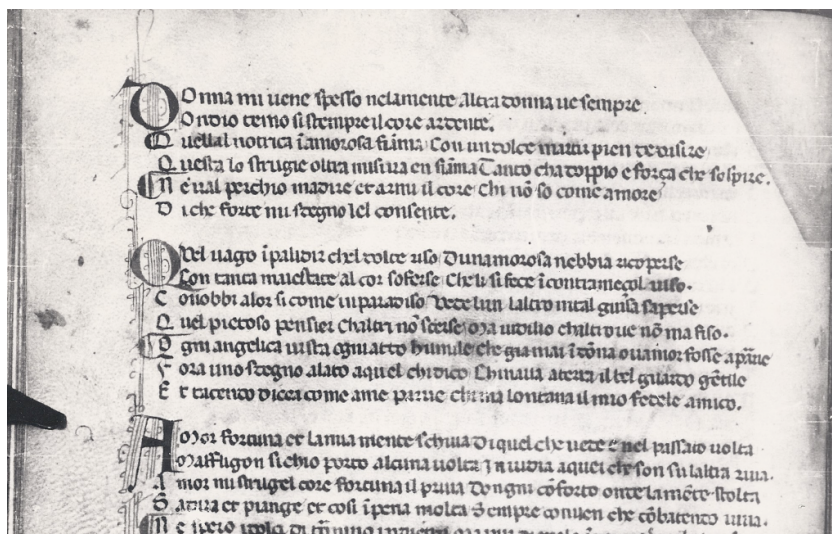 Donna mi uene spesso nelamente altra donna ue sempre
Ondio temo si stempre il core ardente.
Quella il notrica ĩ amorosa fiãma Con un dolce martir pien de disire
Questa lo strugie oltra misura en fiãma Tanto cha doppio e força che sospire.
Ne ual perchio madire et armi il core Chi nõ so come amore
Di che forte mi sdegno lel consente.
Quel uago ĩpalidir chel dolce riso Dunamorosa nebbia ricoperse
Con tanta maiestate al cor soferse Che li si fece ĩcontra meçol uiso.
Conobbi alor si come in paradiso Vede lun laltro in tal guisa saperse
Quel pietoso pensier chaltri nõ scerse Ma uidilio chaltroue nõ ma fiso.
Ogni angelica uista ogni atto humile che gia mai ĩ dõna ouamor fosse aparue
Fora uno sdegno alato aquel chi dico Chinaua aterra il bel guardo gẽtile
Et tacendo dicea come ame parue chi ma lontana il mio fedele amico.
Amor fortuna et la mia mente schiua Di quel che uede e nel passato uolta
Maffligon si chio porto alcuna uolta Inuidia aquei che son su laltra riua.
Amor mi strugel core fortuna il priua Dongni cõforto onde la mẽte stolta
Sadira et piange et cosi ĩ pena molta Sempre conuien che cõbatendo uiua.
Ne spero i dolci di